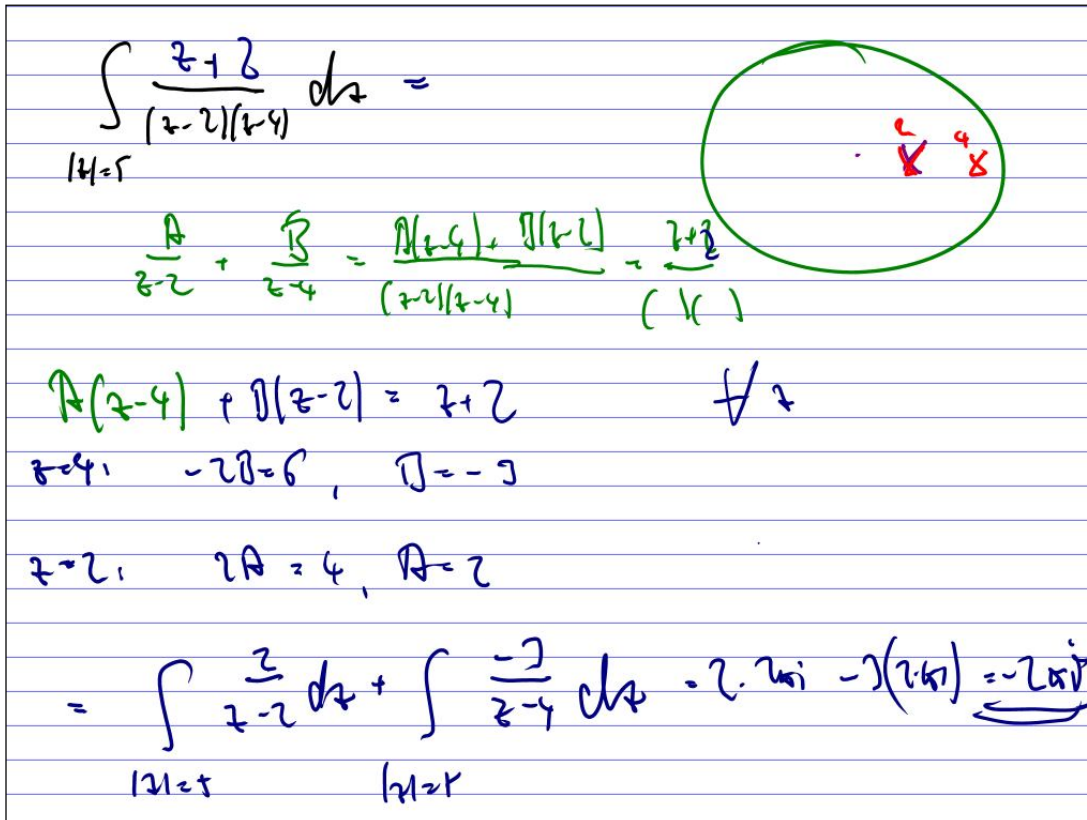 ∫ (z+2)/((z-2)(z-4)) dz =
|z|=5
2 4
A/(z-2) + B/(z-4) = (A(z-4) + B(z-2))/((z-2)(z-4)) = (z+2)/( )( )
A(z-4) + B(z-2) = z+2 ∀ z
z=4: -2B=6, B=-3
z=2: 2A=4, A=2
= ∫ 2/(z-2) dz + ∫ -3/(z-4) dz = 2·2πi -3(2πi) = -2πi
|z|=5 |z|=5